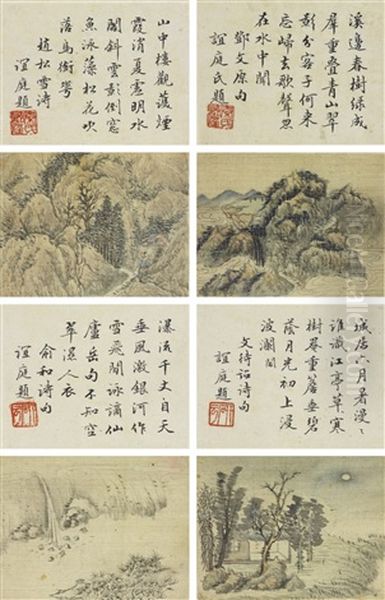 溪邊春樹綠成
羣重疊青山翠
影分客子何來
忘歸去歌聲
在水中聞
鄧文原句
誼庭氏題
山中樓觀煙
霞消夏明水
閣斜雲影倒窓
魚泳藻松花吹
落馬銜
趙松雪詩
誼庭題
城居六月暑漫〻
誰識江亭草寒
樹重簷垂碧
蔭月光初上浸
波瀾間
文待詔詩句
誼庭題
瀑流千丈自天
垂風激銀河作
雪飛閒詠謫仙
廬岳句不知空
翠溼人衣
俞和詩句
誼庭題